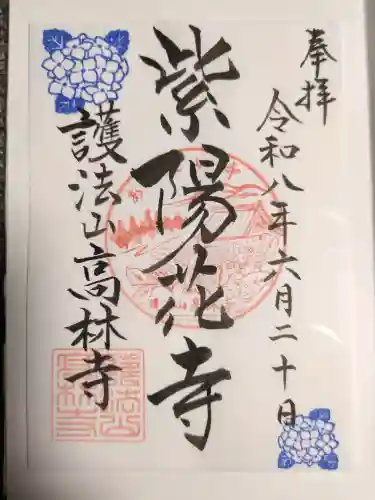 奉拝
令和八年六月二十日
紫陽花寺
護法山高林寺